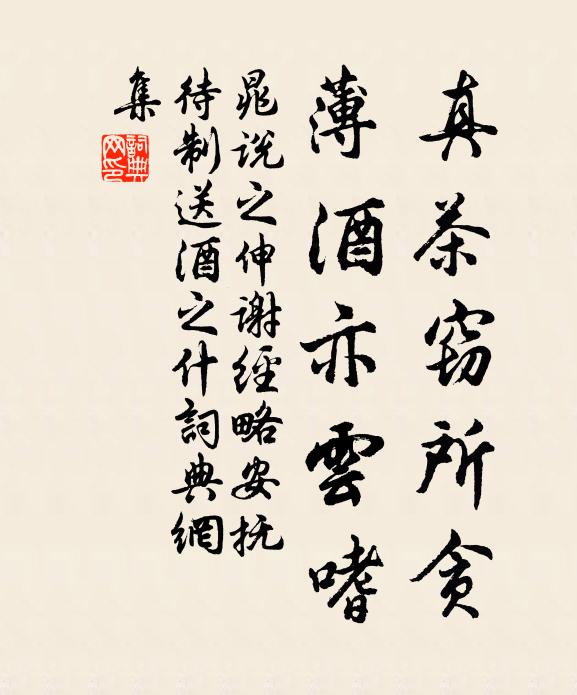 真茶窃所贪
薄酒亦雲嗜
晁說之伸謝經略安抚
待制送酒之什詞典網
集
詞典網印